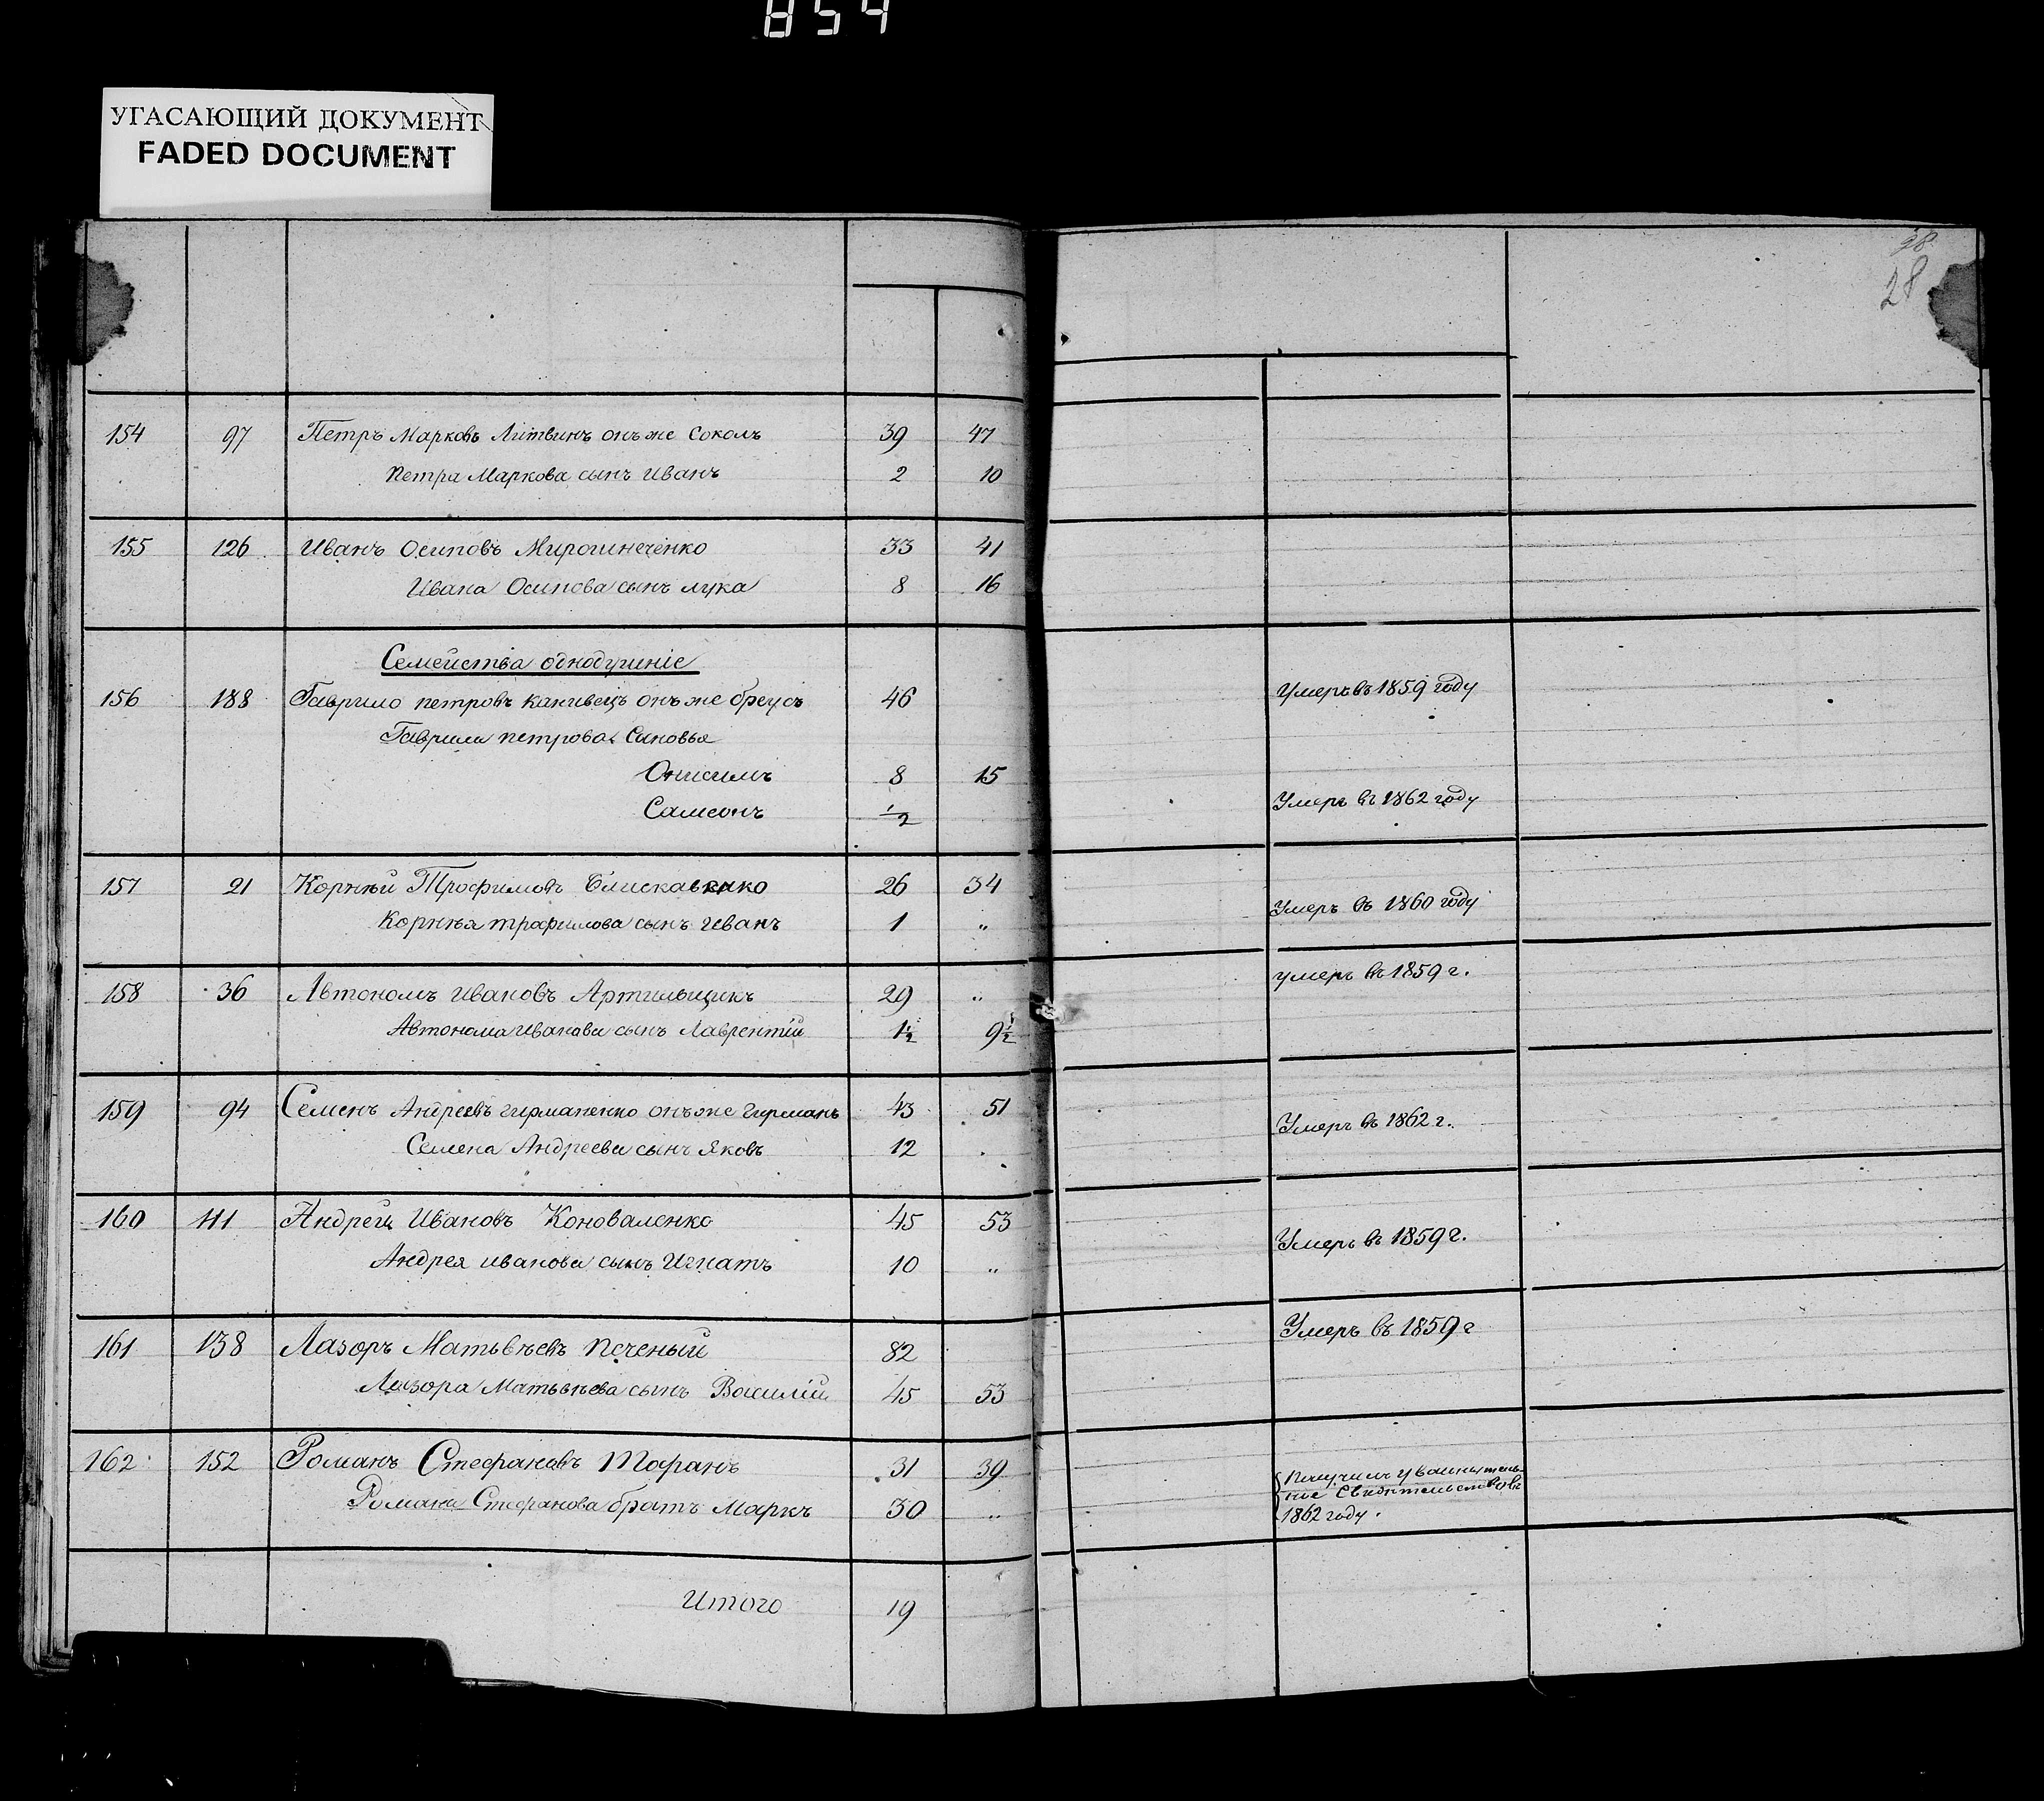 854
УГАСАЮЩИЙ ДОКУМЕНТ
FADED DOCUMENT
28
28
154 97 Петръ Марковъ Литвинъ онъ же Соколъ 39 47
Петра Маркова сынъ Иванъ 2 10
155 126 Иванъ Осиповъ Мирошнеченко 33 41
Ивана Осипова сынъ лука 8 16
Семейства однодушніе
156 188 Гаврило петровъ канивецъ онъ же бреусъ 46 Умеръ въ 1859 году
Гаврила петрова Синовья
Онисимъ 8 15
Самсонъ 1/2 Умеръ въ 1862 году
157 21 Корнѣй Трофимовъ Блискавенко 26 34
Корнѣя трафилова сынъ иванъ 1 „ Умеръ въ 1860 году
158 36 Автономъ Ивановъ Артильщикъ 29 „ умеръ въ 1859 г.
Автонома Иванова сынъ Лаврентій 1½ 9½
159 94 Семенъ Андреевъ гирманенко онъ же Гирманъ 43 51
Семена Андреева сынъ Яковъ 12 Умеръ въ 1862 г.
160 111 Андрей Ивановъ Коноваленко 45 53
Андрея иванова сынъ Игнатъ 10 „ Умеръ въ 1859 г.
161 138 Лазоръ Матьвѣевъ Печеный 82 Умеръ въ 1859 г
Лазора Матьвѣева сынъ Василій 45 53
162 152 Романъ Стефановъ Таранъ 31 39
Романа Стефанова братъ Маркъ 30 „
Получилъ увольнитель
ное Свидѣтельство въ
1862 году.
Итого 19